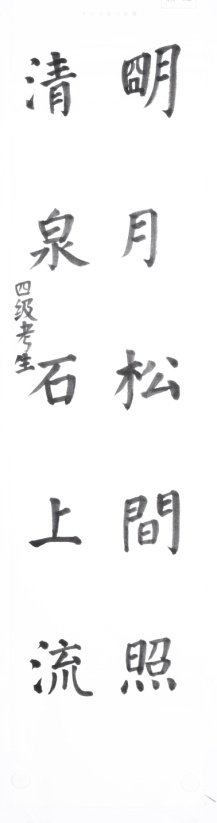 明月松間照
清泉石上流
四级考生